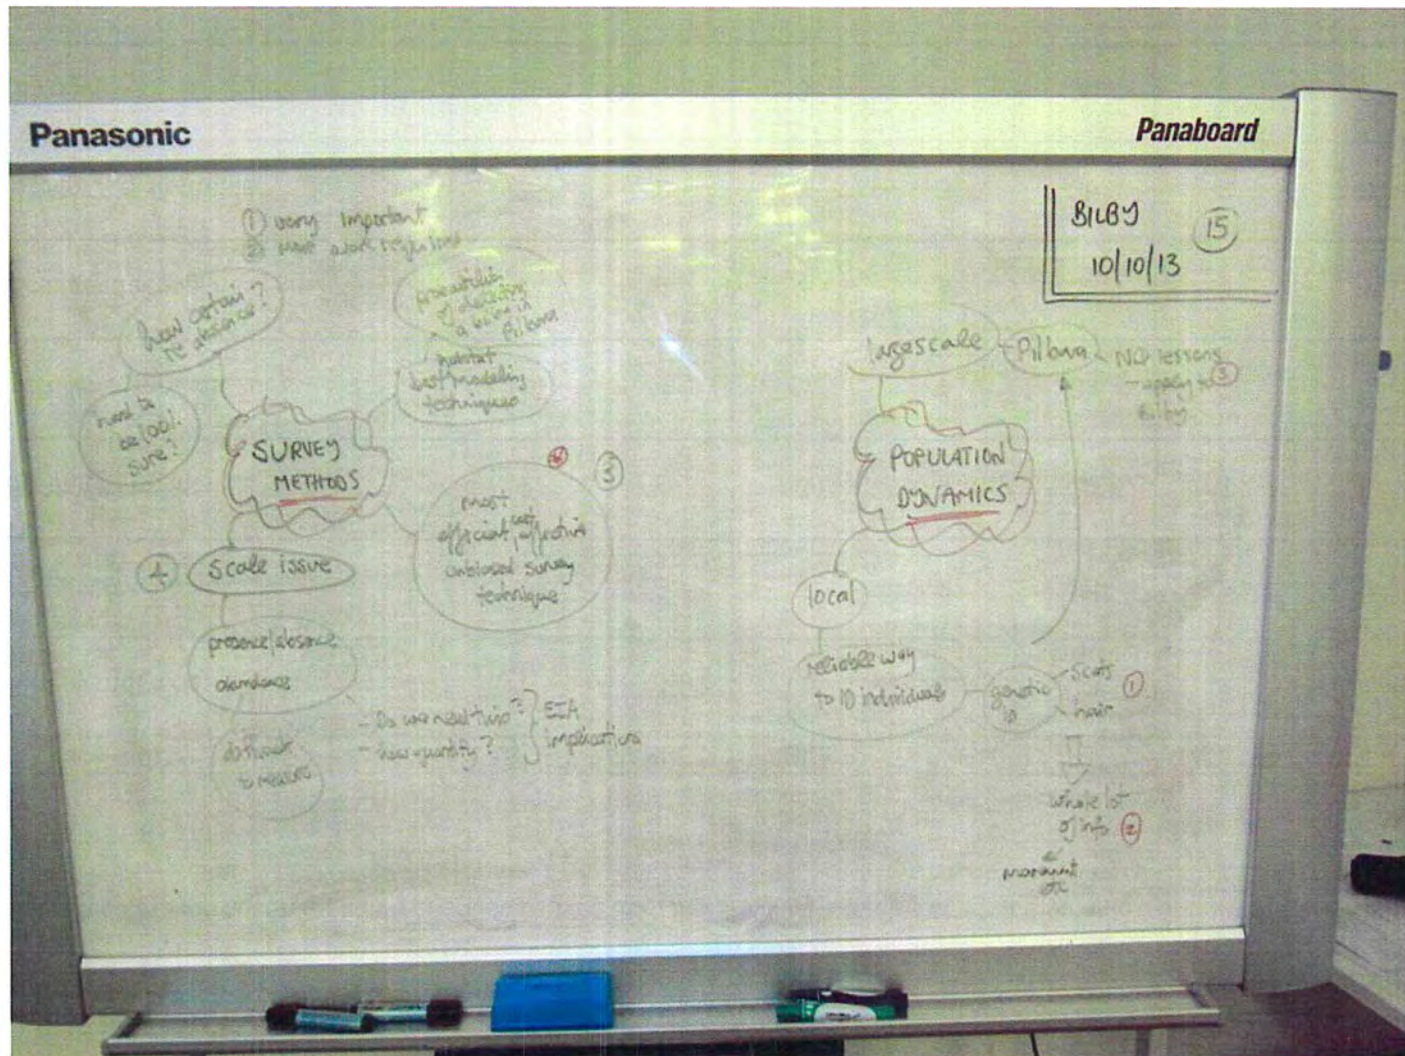 Panasonic
Panaboard
BILBY
10/10/13
15
① very important
② more work required
how certain?
re absence?
need to
be 100%
sure?
of detecting
a bilby in
Pilbara
habitat
modelling
techniques
SURVEY
METHODS
③
most
efficient, cost effective
unbiased survey
technique
④
Scale issue
presence/absence
abundance
difficult
to measure
- Do we need this?
- how quantify?
EIA
implications
large scale
Pilbara
NQ lessons
- apply to ③
bilby
POPULATION
DYNAMICS
local
reliable way
to ID individuals
genetic
ID
scats
hair
①
whole lot
of info ②
etc